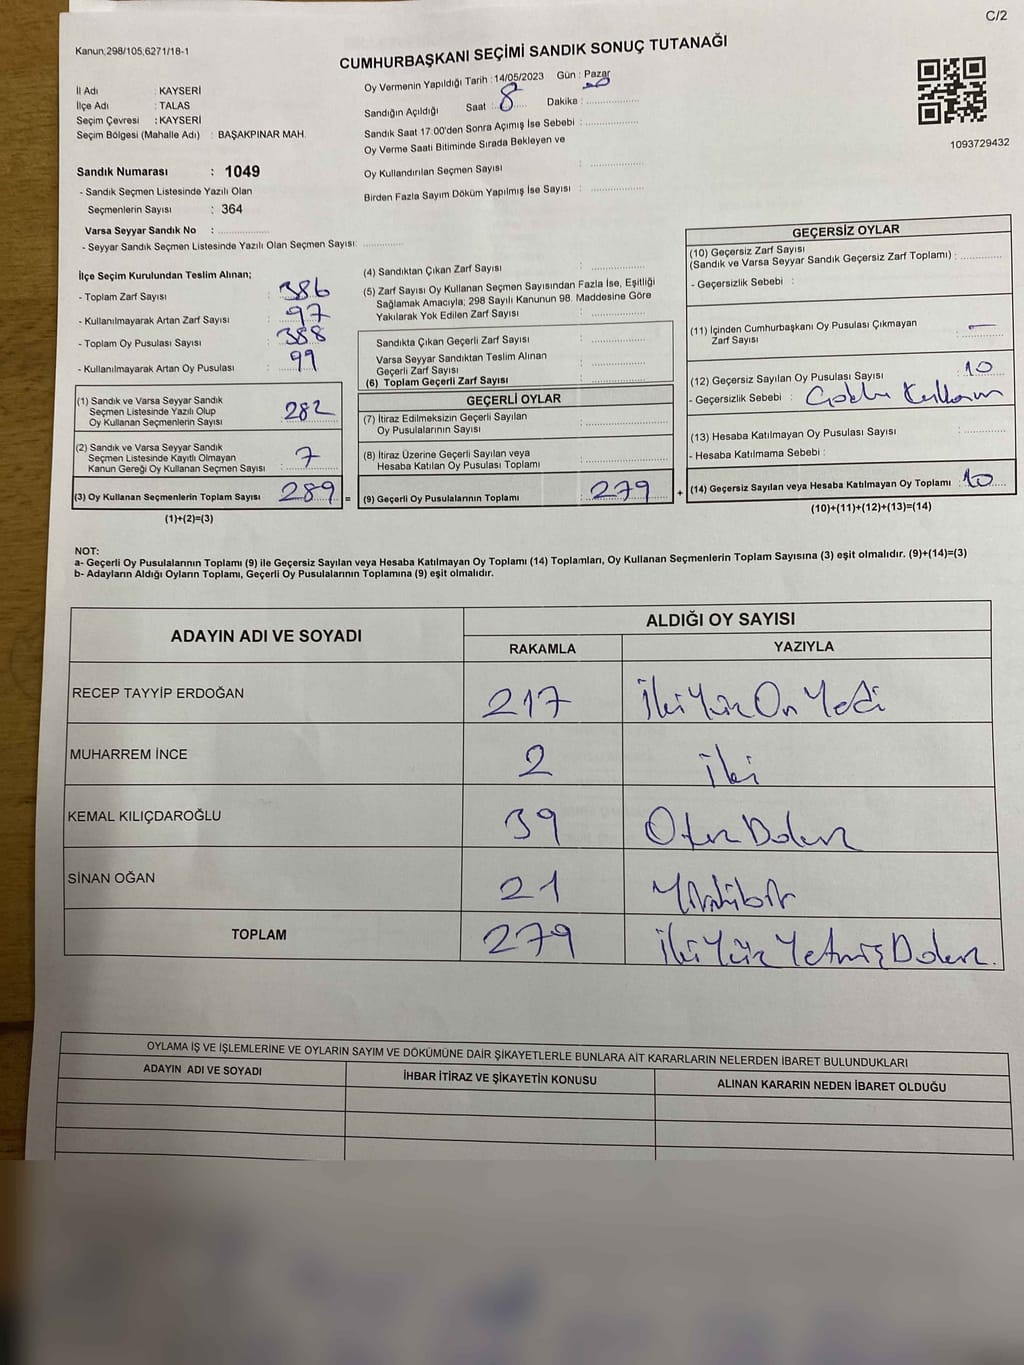 C/2
Kanun;298/105,6271/18-1
CUMHURBAŞKANI SEÇİMİ SANDIK SONUÇ TUTANAĞI
İl Adı : KAYSERİ
İlçe Adı : TALAS
Seçim Çevresi : KAYSERİ
Seçim Bölgesi (Mahalle Adı) : BAŞAKPINAR MAH.
Oy Vermenin Yapıldığı Tarih :14/05/2023 Gün : Pazar
Sandığın Açıldığı Saat : 8 Dakika : 00
Sandık Saat 17:00'den Sonra Açımış İse Sebebi :
Oy Verme Saati Bitiminde Sırada Bekleyen ve
Oy Kullandırılan Seçmen Sayısı :
Birden Fazla Sayım Döküm Yapılmış İse Sayısı :
1093729432
Sandık Numarası : 1049
- Sandık Seçmen Listesinde Yazılı Olan
Seçmenlerin Sayısı : 364
Varsa Seyyar Sandık No :
- Seyyar Sandık Seçmen Listesinde Yazılı Olan Seçmen Sayısı:
İlçe Seçim Kurulundan Teslim Alınan;
- Toplam Zarf Sayısı : 386
- Kullanılmayarak Artan Zarf Sayısı : 97
- Toplam Oy Pusulası Sayısı : 388
- Kullanılmayarak Artan Oy Pusulası : 99
(1) Sandık ve Varsa Seyyar Sandık
Seçmen Listesinde Yazılı Olup
Oy Kullanan Seçmenlerin Sayısı : 282
(2) Sandık ve Varsa Seyyar Sandık
Seçmen Listesinde Kayıtlı Olmayan
Kanun Gereği Oy Kullanan Seçmen Sayısı : 7
(3) Oy Kullanan Seçmenlerin Toplam Sayısı : 289 =
(1)+(2)=(3)
(4) Sandıktan Çıkan Zarf Sayısı :
(5) Zarf Sayısı Oy Kullanan Seçmen Sayısından Fazla İse, Eşitliği
Sağlamak Amacıyla; 298 Sayılı Kanunun 98. Maddesine Göre
Yakılarak Yok Edilen Zarf Sayısı :
Sandıkta Çıkan Geçerli Zarf Sayısı :
Varsa Seyyar Sandıktan Teslim Alınan
Geçerli Zarf Sayısı :
(6) Toplam Geçerli Zarf Sayısı :
GEÇERLİ OYLAR
(7) İtiraz Edilmeksizin Geçerli Sayılan
Oy Pusulalarının Sayısı :
(8) İtiraz Üzerine Geçerli Sayılan veya
Hesaba Katılan Oy Pusulası Toplamı :
(9) Geçerli Oy Pusulalarının Toplamı : 279 +
GEÇERSİZ OYLAR
(10) Geçersiz Zarf Sayısı
(Sandık ve Varsa Seyyar Sandık Geçersiz Zarf Toplamı) :
- Geçersizlik Sebebi :
(11) İçinden Cumhurbaşkanı Oy Pusulası Çıkmayan
Zarf Sayısı : —
(12) Geçersiz Sayılan Oy Pusulası Sayısı : 10
- Geçersizlik Sebebi :
(13) Hesaba Katılmayan Oy Pusulası Sayısı :
- Hesaba Katılmama Sebebi :
(14) Geçersiz Sayılan veya Hesaba Katılmayan Oy Toplamı : 10
(10)+(11)+(12)+(13)=(14)
NOT:
a- Geçerli Oy Pusulalarının Toplamı (9) ile Geçersiz Sayılan veya Hesaba Katılmayan Oy Toplamı (14) Toplamları, Oy Kullanan Seçmenlerin Toplam Sayısına (3) eşit olmalıdır. (9)+(14)=(3)
b- Adayların Aldığı Oyların Toplamı, Geçerli Oy Pusulalarının Toplamına (9) eşit olmalıdır.
ADAYIN ADI VE SOYADI ALDIĞI OY SAYISI
RAKAMLA YAZIYLA
RECEP TAYYİP ERDOĞAN 217 İkiYüz On Yedi
MUHARREM İNCE 2 İki
KEMAL KILIÇDAROĞLU 39 Otuz Dokuz
SİNAN OĞAN 21 Yirmibir
TOPLAM 279 İkiYüz YetmişDokuz.
OYLAMA İŞ VE İŞLEMLERİNE VE OYLARIN SAYIM VE DÖKÜMÜNE DAİR ŞİKAYETLERLE BUNLARA AİT KARARLARIN NELERDEN İBARET BULUNDUKLARI
ADAYIN ADI VE SOYADI İHBAR İTİRAZ VE ŞİKAYETİN KONUSU ALINAN KARARIN NEDEN İBARET OLDUĞU